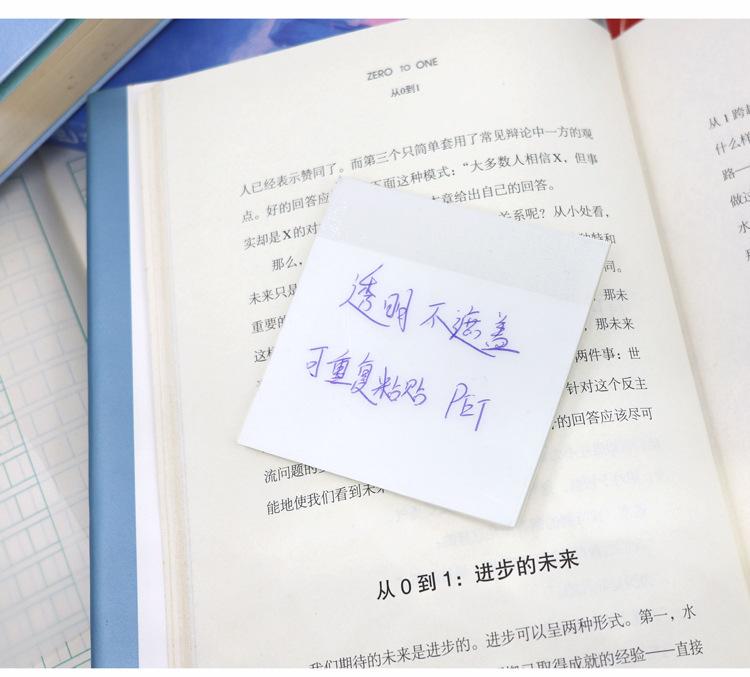 ZERO TO ONE
从0到1
人已经表示赞同了。而第三个只简单套用了常见辩论中一方的观
点。好的回答应 面这种模式：“大多数人相信X，但事
实却是X的对 章给出自己的回答。
那么， 关系呢？从小处看，
未来只是 特和
重要的 同。
这 那未
那未来
两件事：世
针对这个反主
流问题的 的回答应该尽可
能地使我们看到未来
透明 不遮盖
可重复粘贴 PET
从0到1：进步的未来
我们期待的未来是进步的。进步可以呈两种形式。第一，水
已取得成就的经验——直接
从1跨越
什么样
路—
做这
水